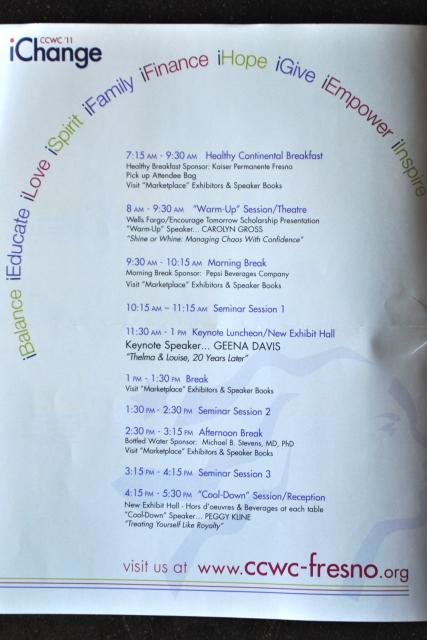 CCWC '11
iChange
iBalance iEducate iLove iSpirit iFamily iFinance iHope iGive iEmpower iInspire
7:15 AM - 9:30 AM Healthy Continental Breakfast
Healthy Breakfast Sponsor: Kaiser Permanente Fresno
Pick up Attendee Bag
Visit "Marketplace" Exhibitors & Speaker Books
8 AM - 9:30 AM "Warm-Up" Session/Theatre
Wells Fargo/Encourage Tomorrow Scholarship Presentation
"Warm-Up" Speaker... CAROLYN GROSS
"Shine or Whine: Managing Chaos With Confidence"
9:30 AM - 10:15 AM Morning Break
Morning Break Sponsor: Pepsi Beverages Company
Visit "Marketplace" Exhibitors & Speaker Books
10:15 AM – 11:15 AM Seminar Session 1
11:30 AM - 1 PM Keynote Luncheon/New Exhibit Hall
Keynote Speaker... GEENA DAVIS
"Thelma & Louise, 20 Years Later"
1 PM - 1:30 PM Break
Visit "Marketplace" Exhibitors & Speaker Books
1:30 PM - 2:30 PM Seminar Session 2
2:30 PM - 3:15 PM Afternoon Break
Bottled Water Sponsor: Michael B. Stevens, MD, PhD
Visit "Marketplace" Exhibitors & Speaker Books
3:15 PM - 4:15 PM Seminar Session 3
4:15 PM - 5:30 PM "Cool-Down" Session/Reception
New Exhibit Hall - Hors d'oeuvres & Beverages at each table
"Cool-Down" Speaker... PEGGY KLINE
"Treating Yourself Like Royalty"
visit us at www.ccwc-fresno.org